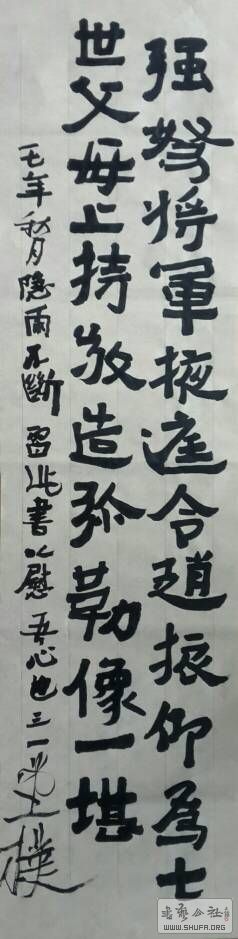 强弩将軍掖庭令趙振仰為七
世父母上持敬造弥勒像一堪
年秋月隐雨不断習此書以慰吾心也三一
書藝公社
WWW.SHUFA.ORG